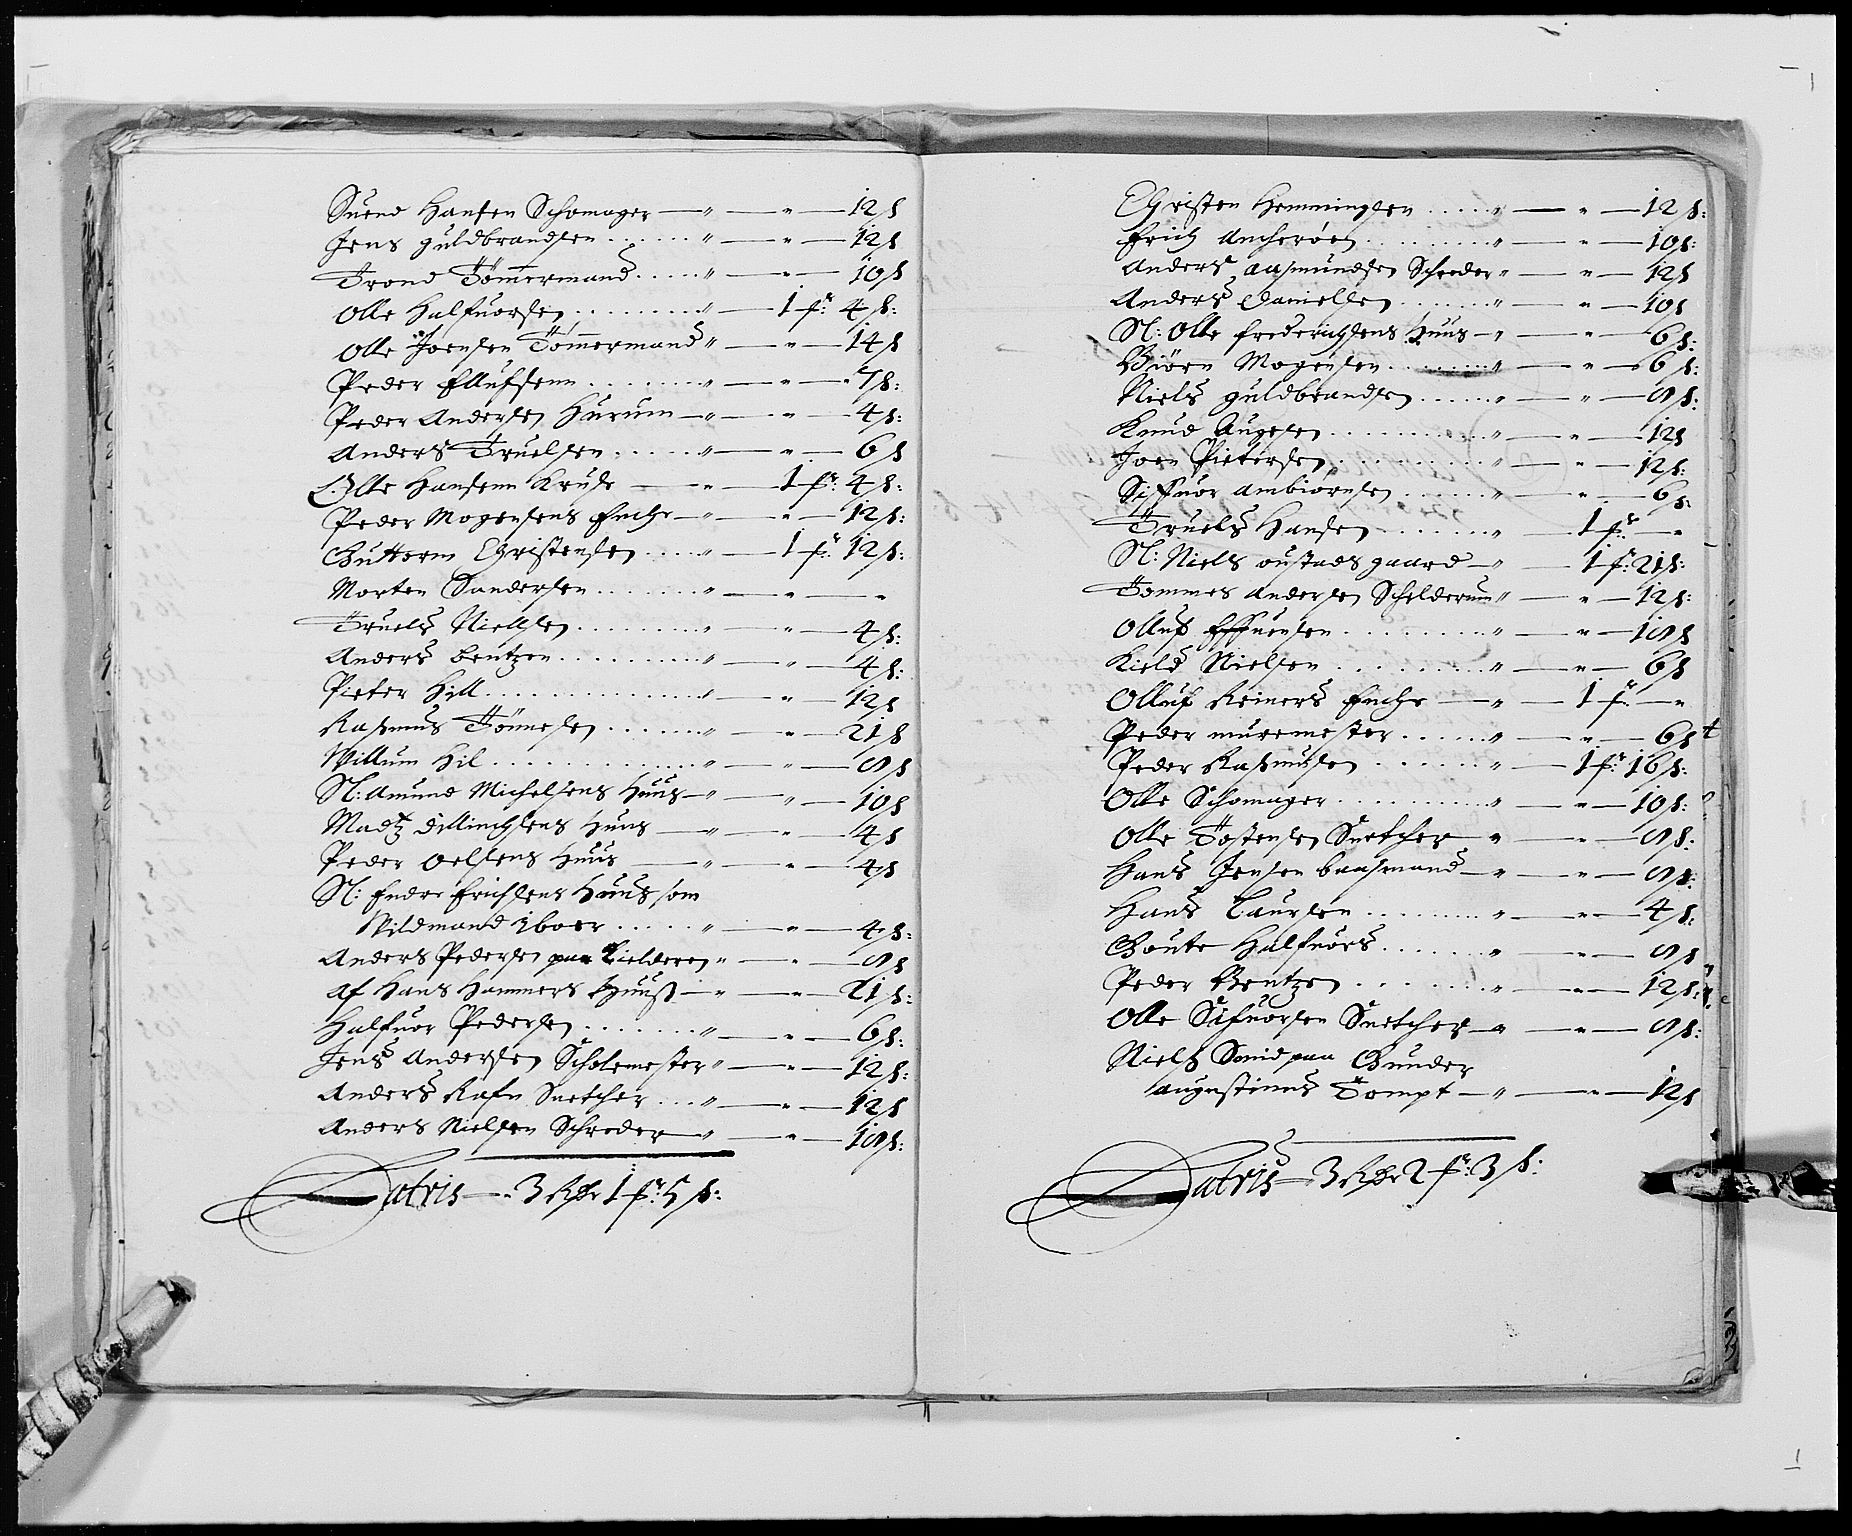 Suend Hansen Schomager — " — " — 12 ß
Jens guldbrandsen . . . . . . " — " — 12 ß
Trond Tömmermand . . . . . " — " — 10 ß
Olle Halfuorsen . . . . . . . . " — 1 fr: 4 ß:
Olle Joensen Tömmermand " — " — 14 ß
Peder Ellufsenn . . . . . . . . " — " — 7 ß:
Peder Andersen Hurum — " — " — 4 ß:
Anders Truelsen . . . . . " — " — 6 ß
Olle Hansenn Kruse — " — 1 fr: 4 ß:
Peder Mogensens Enche — " — " — 12 ß:
Guttorm Christensen . . . . " — 1 fr: 12 ß:
Morten Sandersen . . . . . . " — " — "
Truels Nielsen . . . . . . . . . " — " — 4 ß:
Anders bentzen . . . . . . . . . " — " — 4 ß:
Pieter Hill . . . . . . . . . . . . " — " — 12 ß
Rasmus Tönnesen . . . . . . " — " — 21 ß
Willum Hil . . . . . . . . . . . . " — " — 8 ß
Sl: Amund Michelsens Huus — " — " — 10 ß
Madtz Huus — " — " — 4 ß
Peder Oelsens Huus — " — " — 4 ß
Sl: Endre Erichsens Huus som
Wildmand iboer . . . . . " — " — 4 ß:
Anders Pedersen paa " — " — 8 ß
Af Hans Hammers Huuß — " — " — 21 ß:
Halfuor Pedersen . . . . . . . " — " — 6 ß:
Jens Andersen Scholemester " — " — 12 ß:
Anders Rafn Snetcher . . . " — " — 12 ß
Anders Nielsen Schreder — " — " — 18 ß:
Latris — 3 Rdr 1 fr: 5 ß:
Christen Hemmingsen . . . . . " — " — 12 ß:
Erich Ancherøen . . . . . . . . . " — " — 10 ß:
Anders Aasmundsen Schreder " — " — 12 ß
Anders Danielsen . . . . . . . " — " — 10 ß
Sl: Olle frederichsens Huus — " — " — 6 ß:
Biörn Mogensen . . . . . . . . " — " — 6 ß:
Niels guldbrandsen . . . . . . " — " — 8 ß:
Knud Augesen . . . . . . . . . . " — " — 12 ß
Joen Pietersen . . . . . . . . . . " — " — 12 ß:
Siffuor Ambiörnsen . . . . . . " — " — 6 ß:
Truels Hansen . . . . . . . . " — 1 fr: — "
Sl: Niels oustads gaard — " — 1 fr: 21 ß:
Tommes Andersen Schelderum " — " — 12 ß:
Olluf Effuensen . . . . . . . . . " — " — 18 ß
Kield Nielsen . . . . . . . . . . " — " — 6 ß
Olluf Reiners Enche — " — 1 fr: — "
Peder muremester . . . . . . " — " — 6 ß
Peder Rasmusen . . . . . . . " — 1 fr: 16 ß:
Olle Schomager . . . . . . . . . . " — " — 10 ß:
Olle Tostensen Snetcher " — " — 8 ß:
Hans Jensen baasmand — " — " — 8 ß:
Hans Laursen . . . . . . . . " — " — 4 ß:
Goute Halfuors . . . . . . . " — " — 8 ß
Peder Bentzen . . . . . . . . " — " — 12 ß:
Olle Sifuorsen Snetcher — " — " — 8 ß:
Niels Smid paa Gunder
augustinus Tompt — " — " — 12 ß
Latris — 3 Rdr 2 fr: 3 ß: